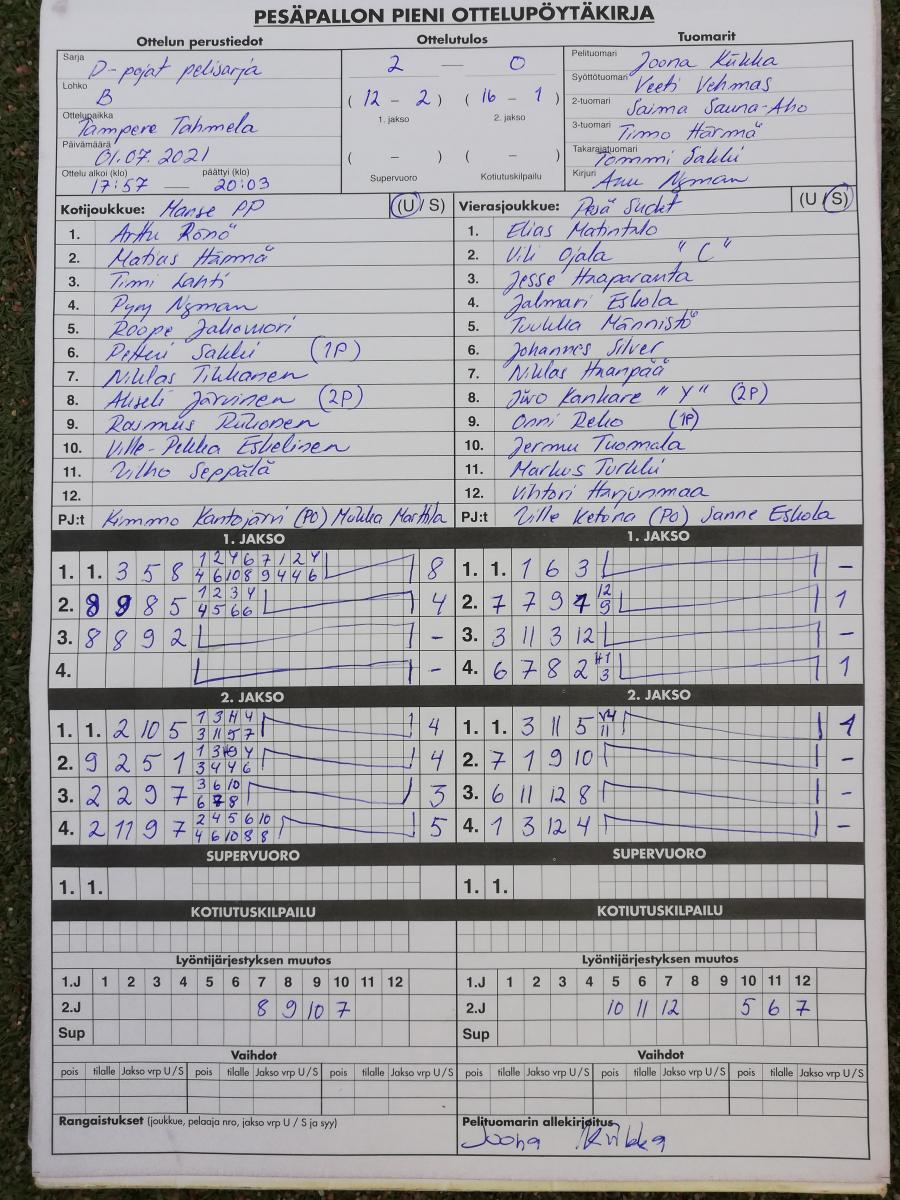 PESÄPALLON PIENI OTTELUPÖYTÄKIRJA
Ottelun perustiedot
Sarja D-pojat pelisarja
Lohko B
Ottelupaikka Tampere Tahmela
Päivämäärä 01.07.2021
Ottelu alkoi (klo) päättyi (klo)
17:57 — 20:03
Ottelutulos
2 — 0
( 12 - 2 ) ( 16 - 1 )
1. jakso 2. jakso
( - ) ( - )
Supervuoro Kotiutuskilpailu
Tuomarit
Pelituomari Joona Kukka
Syöttötuomari Veeti Vehmas
2-tuomari Saima Sauna-Aho
3-tuomari Timo Härmä
Takarajatuomari Tommi Sakki
Kirjuri Anu Nyman
Kotijoukkue: Manse PP (U / S)
1. Arttu Rönö
2. Matias Härmä
3. Timi Lahti
4. Pyry Nyman
5. Roope Jakomori
6. Petteri Sakki (1P)
7. Niklas Tikkanen
8. Akseli Järvinen (2P)
9. Rasmus Riihonen
10. Ville-Pekka Eskelinen
11. Vilho Seppälä
12.
PJ:t Kimmo Kantojärvi (PO) Miikka Marttila
Vierasjoukkue: Pesä Sudet (U / S)
1. Elias Matintalo
2. Vili Ojala "C"
3. Jesse Haaparanta
4. Jalmari Eskola
5. Tuukka Männistö
6. Johannes Silver
7. Niklas Haanpää
8. Iivo Kankare "Y" (2P)
9. Onni Reko (1P)
10. Jermu Tuomala
11. Markus Turkki
12. Vihtori Harjunmaa
PJ:t Ville Ketona (PO) Sanne Eskola
1. JAKSO
1. 1. 3 5 8 1 2 4 6 7 1 2 4 8
4 6 10 8 9 4 4 6
2. 9 9 8 5 1 2 3 4 4
4 5 6 6
3. 8 8 9 2 -
4. -
1. JAKSO
1. 1. 1 6 3 -
2. 7 7 9 7 12 1
9
3. 3 11 3 12 -
4. 6 7 8 2 H1 1
3
2. JAKSO
1. 1. 2 10 5 1 3 H 4 4
3 11 5 7
2. 9 2 5 1 1 3 4 4
3 4 4 6
3. 2 2 9 7 3 6 10 3
6 7 8
4. 2 11 9 7 2 4 5 6 10 5
4 6 10 8 8
2. JAKSO
1. 1. 3 11 5 V4 1
11
2. 7 1 9 10 -
3. 6 11 12 8 -
4. 1 3 12 4 -
SUPERVUORO
1. 1.
SUPERVUORO
1. 1.
KOTIUTUSKILPAILU
KOTIUTUSKILPAILU
Lyöntijärjestyksen muutos
1.J 1 2 3 4 5 6 7 8 9 10 11 12
2.J 8 9 10 7
Sup
Lyöntijärjestyksen muutos
1.J 1 2 3 4 5 6 7 8 9 10 11 12
2.J 10 11 12 5 6 7
Sup
Vaihdot
pois tilalle Jakso vrp U / S pois tilalle Jakso vrp U / S pois tilalle Jakso vrp U / S
Vaihdot
pois tilalle Jakso vrp U / S pois tilalle Jakso vrp U / S pois tilalle Jakso vrp U / S
Rangaistukset (joukkue, pelaaja nro, jakso vrp U / S ja syy)
Pelituomarin allekirjoitus
Joona Kukka